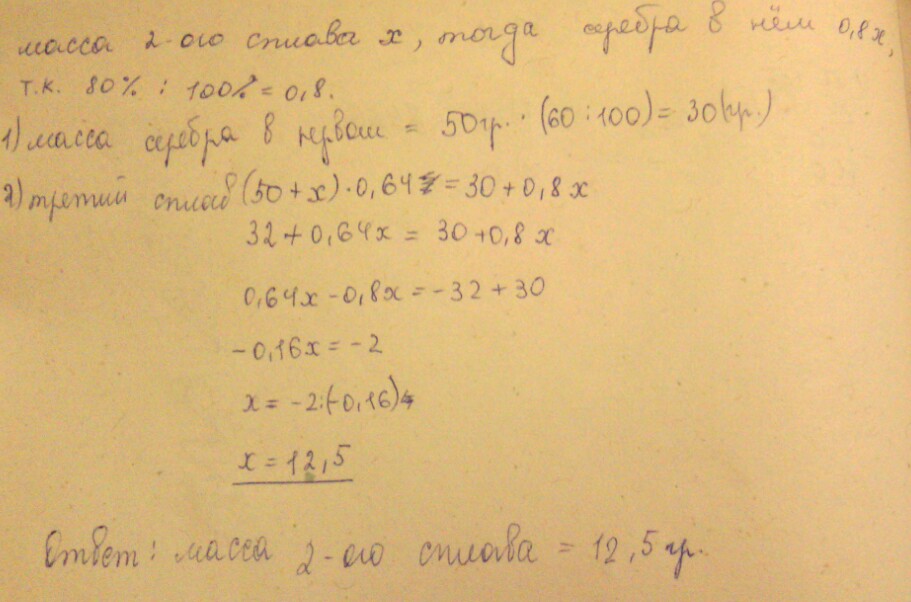 масса 2-ого сплава x, тогда серебра в нём 0,8x,
т.к. 80% : 100% = 0,8.
1) масса серебра в первом = 50гр. · (60 : 100) = 30(гр.)
2) третий сплав (50 + x) · 0,64 = 30 + 0,8x
32 + 0,64x = 30 + 0,8x
0,64x - 0,8x = -32 + 30
-0,16x = -2
x = -2:(-0,16)
x = 12,5
Ответ: масса 2-ого сплава = 12,5 гр.